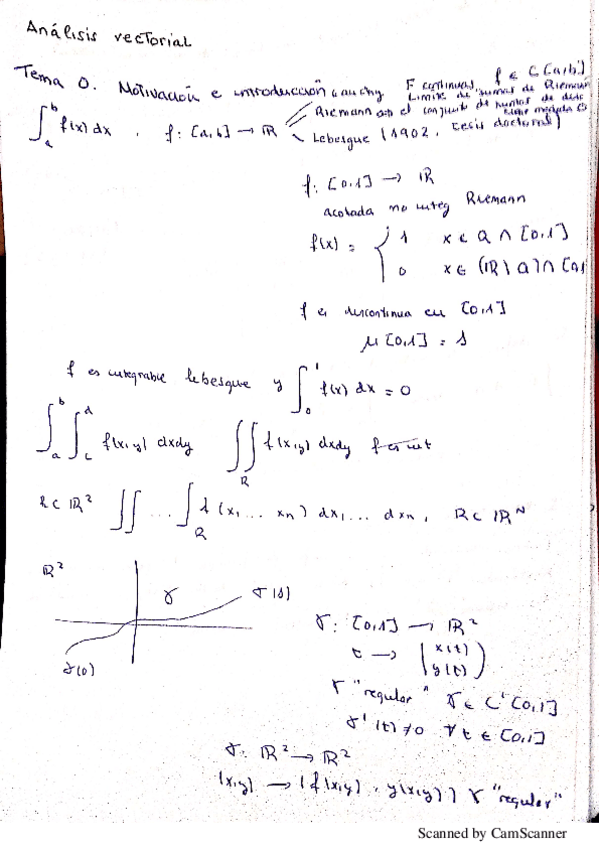 Análisis vectorial
Tema 0. Motivación e introducción Cauchy F continuas, f ∈ C[a,b]
Límite de sumas de Riemann
∫_a^b f(x) dx , f: [a,b] → ℝ Riemann el conjunto de puntos de disc
Lebesgue (1902, tesis doctoral)
f: [0,1] → ℝ
acotada no integ Riemann
f(x) = { 1 x ∈ Q ∩ [0,1]
0 x ∈ (ℝ\Q) ∩ [0,
f es discontinua en [0,1]
μ[0,1] = 1
f es integrable lebesgue y ∫_0^1 f(x) dx = 0
∫_a^b ∫_c^d f(x,y) dxdy ∬_R f(x,y) dxdy
R ⊂ ℝ² ∬ ... ∫_R f(x₁ ... xn) dx₁ ... dxn , R ⊂ ℝ^N
ℝ²
γ σ(1)
σ(0)
σ: [0,1] → ℝ²
t → (x(t)
y(t))
γ "regular" σ ∈ C'[0,1]
σ'(t) ≠ 0 ∀t ∈ [0,1]
σ: ℝ² → ℝ²
(x,y) → (f(x,y), y(x,y)) γ "regular"
Scanned by CamScanner